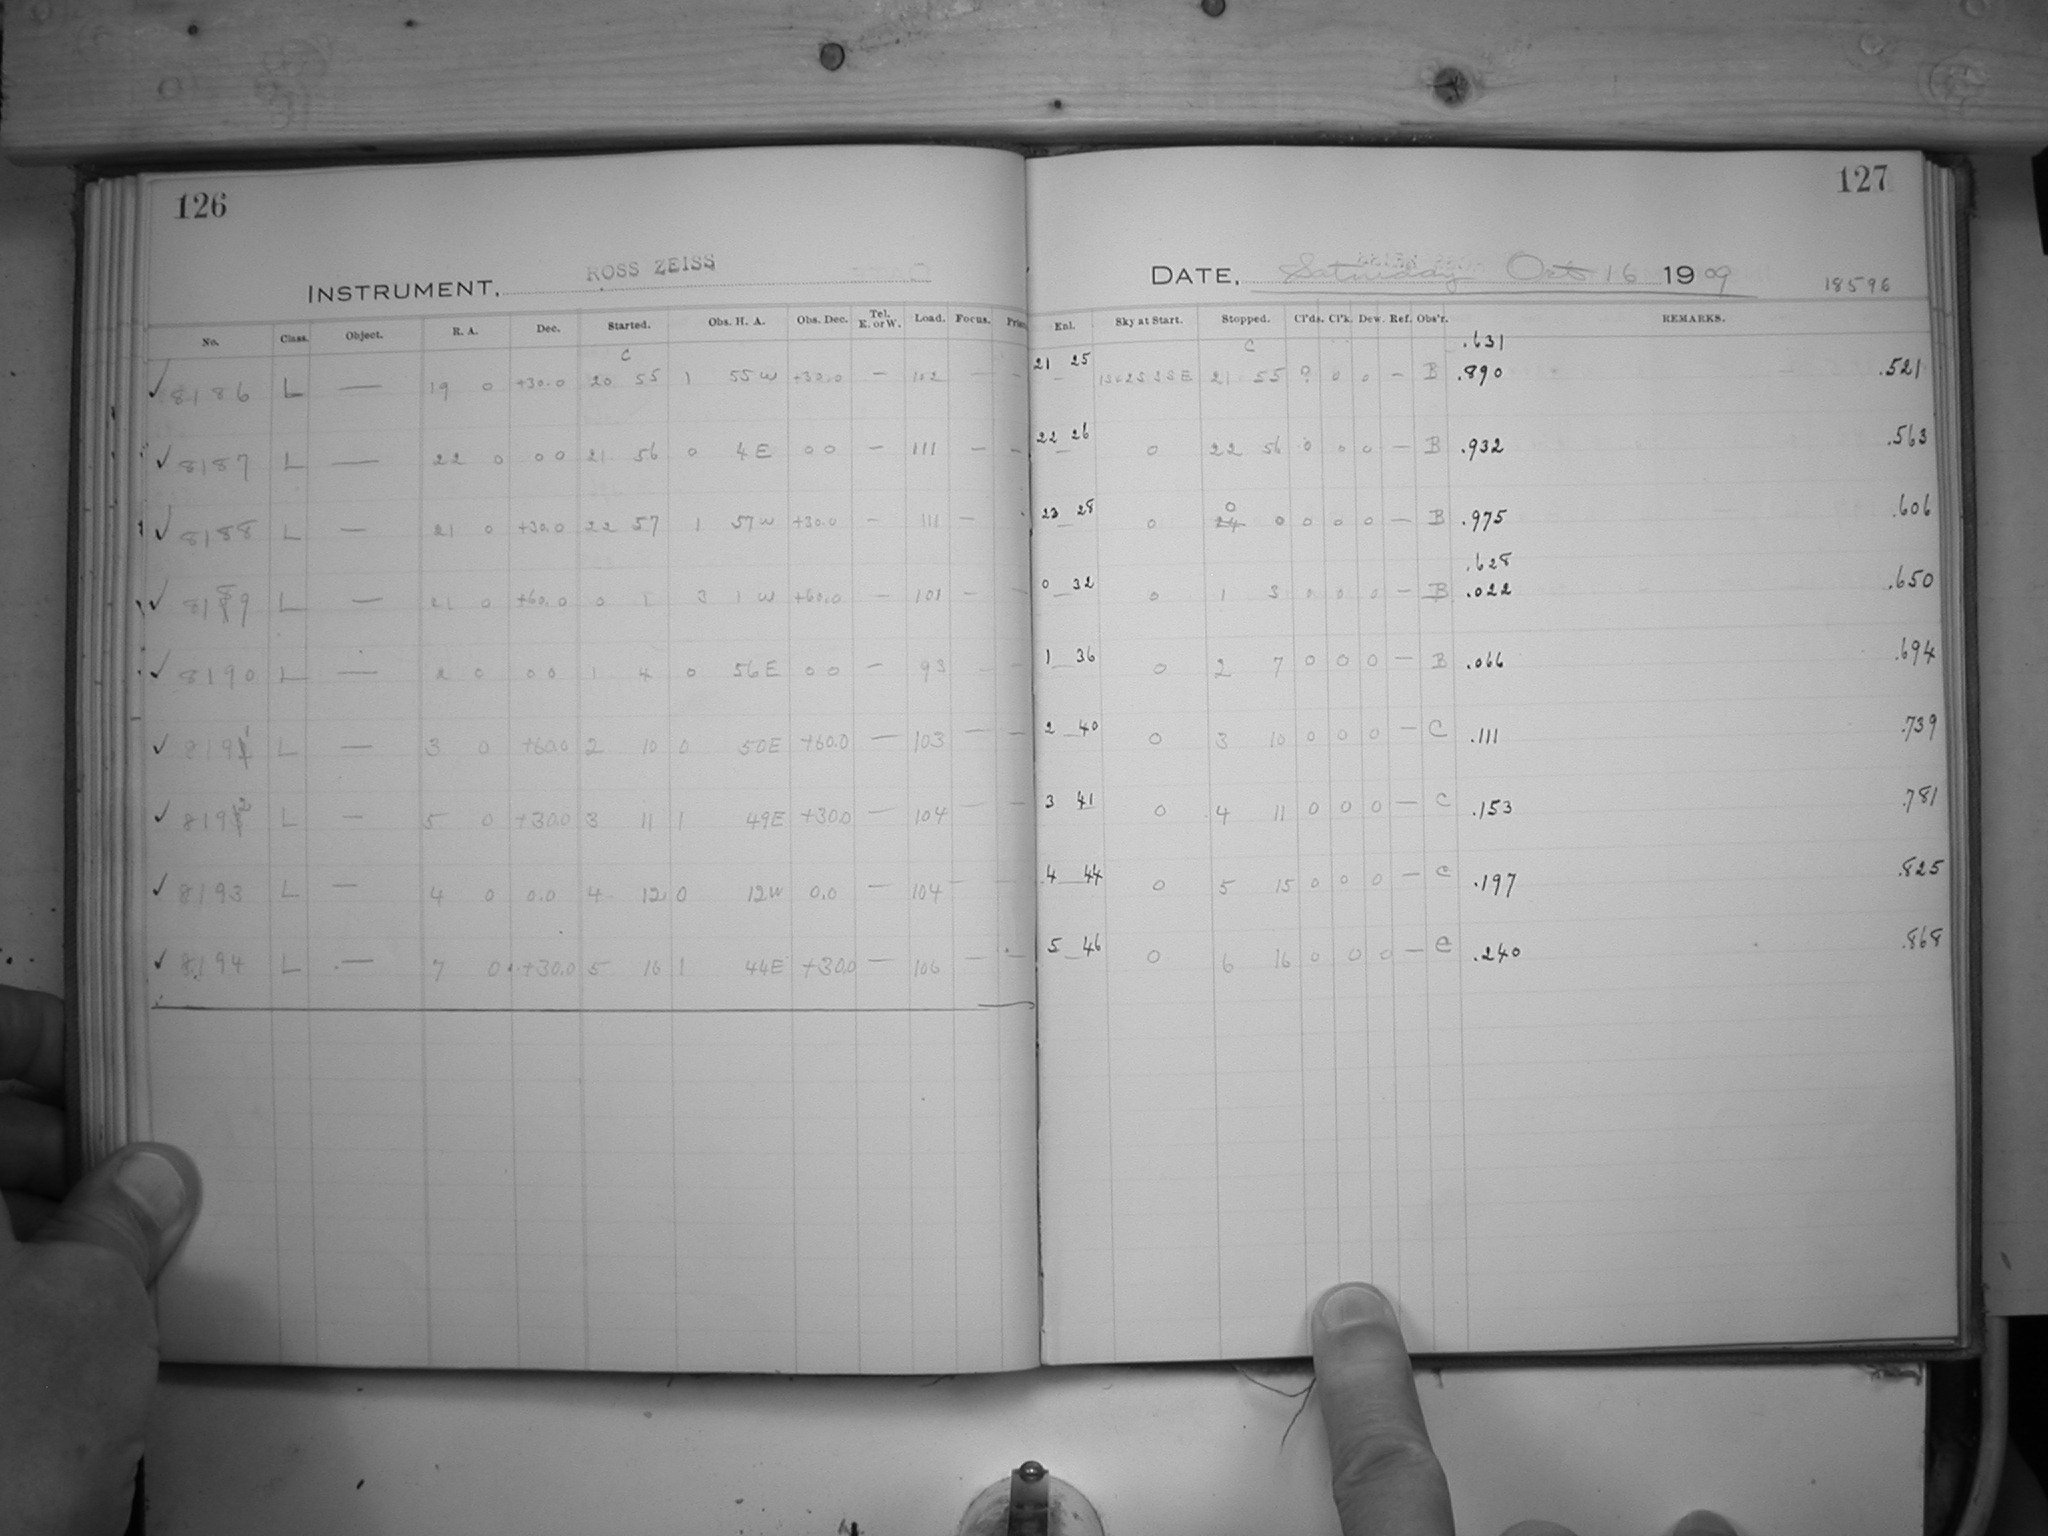 126
127
INSTRUMENT, ROSS ZEISS
DATE, Saturday Oct 16 1909 18596
No. Class. Object. R. A. Dec. Started. Obs. H. A. Obs. Dec. Tel. E. or W. Load. Focus. Enl. Sky at Start. Stopped. Cl'ds. Cl'k. Dew. Ref. Obs'r. REMARKS.
C C .631
✓ 8186 L — 19 0 +30.0 20 55 1 55 W +30.0 — 102 — — 21 25 21 55 ? 0 0 — B .890 .521
✓ 8187 L — 22 0 0 0 21 56 0 4 E 0 0 — 111 — — 22 26 0 22 56 0 0 0 — B .932 .563
✓ 8188 L — 21 0 +30.0 22 57 1 57 W +30.0 — 111 — 23 28 0 0 0 0 0 0 — B .975 .606
.628
✓ 8189 L — 21 0 +60.0 0 1 3 1 W +60.0 — 101 — — 0 32 0 1 3 0 0 0 — B .022 .650
✓ 8190 L — 2 0 0 0 1 4 0 56 E 0 0 — 93 — — 1 36 0 2 7 0 0 0 — B .066 .694
✓ 8191 L — 3 0 +60.0 2 10 0 50 E +60.0 — 103 — — 2 40 0 3 10 0 0 0 — C .111 .739
✓ 8192 L — 5 0 +30.0 3 11 1 49 E +30.0 — 104 — — 3 41 0 4 11 0 0 0 — C .153 .781
✓ 8193 L — 4 0 0.0 4 12 0 12 W 0.0 — 104 — — 4 44 0 5 15 0 0 0 — C .197 .825
✓ 8194 L — 7 0 +30.0 5 16 1 44 E +30.0 — 106 — — 5 46 0 6 16 0 0 0 — C .240 .868